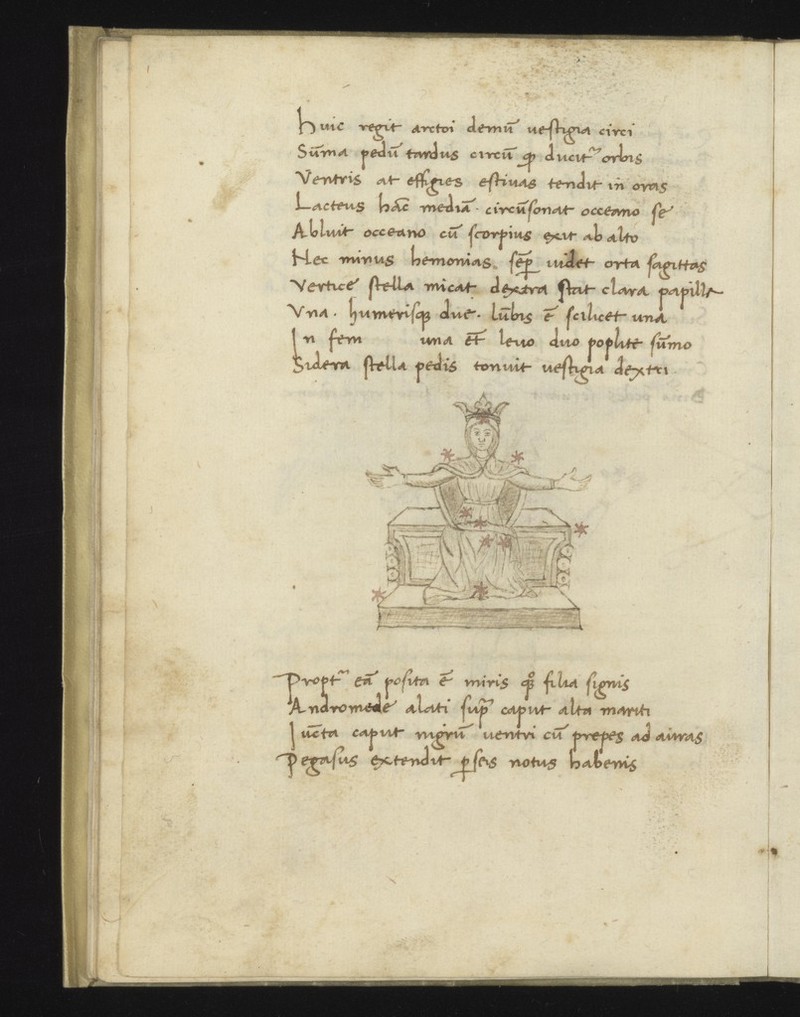 Huic regit arctoi demū vestigia circi
Sūma pedū tardus circū qȝ ducit᷒ orbis
Ventris at effigies estivas tendit in oras
Lacteus hāc mediā · circūsonat occeano se
Abluit occeano cū scorpius exit ab alto
Nec minus hemonias semꝑ videt orta sagittas
Vertice stella micat dextra stat clara papilla
Vna · humerisqȝ due · lūbis ē scilicet una
In fem una et levo duo poplite sūmo
Sidera stella pedis tonuit vestigia dextri
Propt᷒ eā posita ē miris filia signis
Andromede alati sup̄ caput alta mariti
Iūcta caput nigrū ventri cū prepes ad auras
Pegasus extendit ꝑseis notus habenis